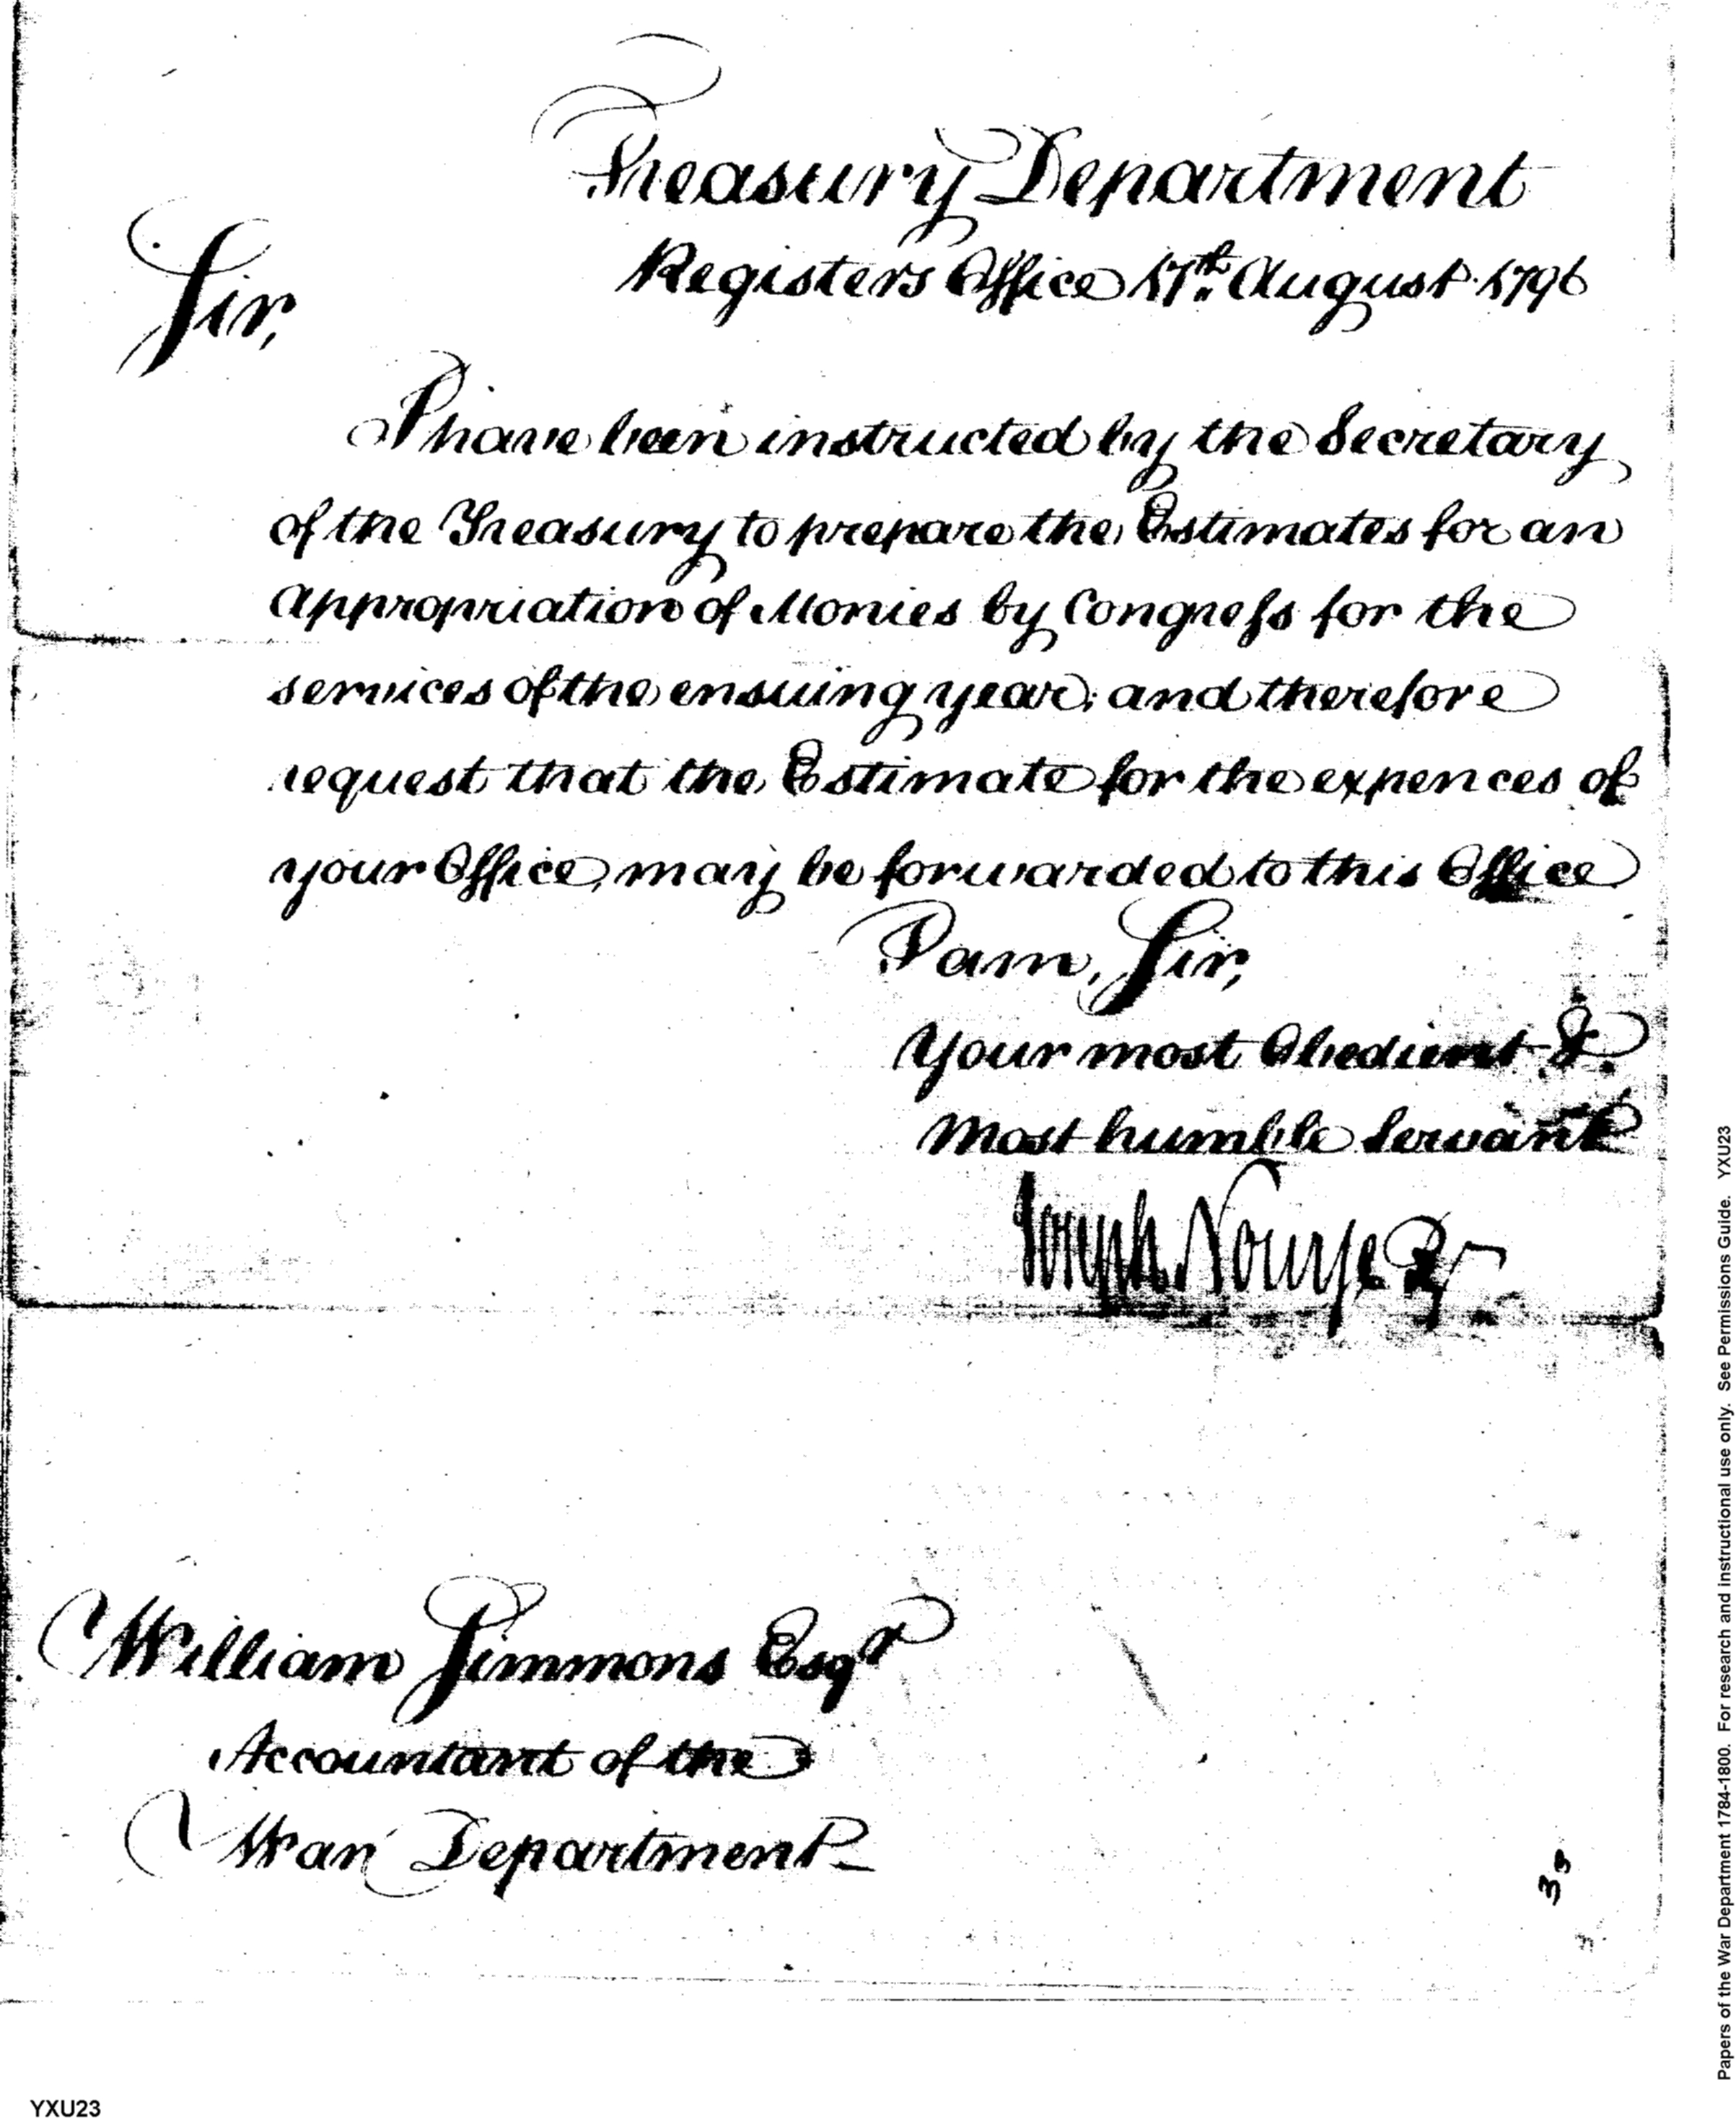 Treasury Department
Registers Office 17th August 1796
Sir,
I have been instructed by the Secretary
of the Treasury to prepare the Estimates for an
appropriation of Monies by Congress for the
services of the ensuing year; and therefore
request that the Estimate for the expences of
your Office, may be forwarded to this Office
I am, Sir,
Your most Obedient &
Most humble Servant
Joseph Nourse Rr
William Simmons Esqr
Accountant of the
War Department
33
YXU23
Papers of the War Department 1784-1800. For research and instructional use only. See Permissions Guide. YXU23